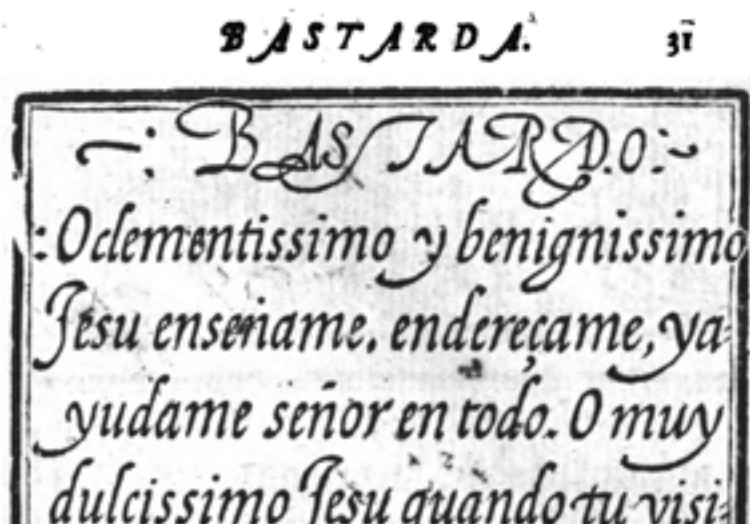 BASTARDA. 31
BASTARDO:
:O clementissimo y benignissimo
Jesu enseñame, endereçame, ya-
yudame señor en todo. O muy
dulcissimo Jesu quando tu visi-